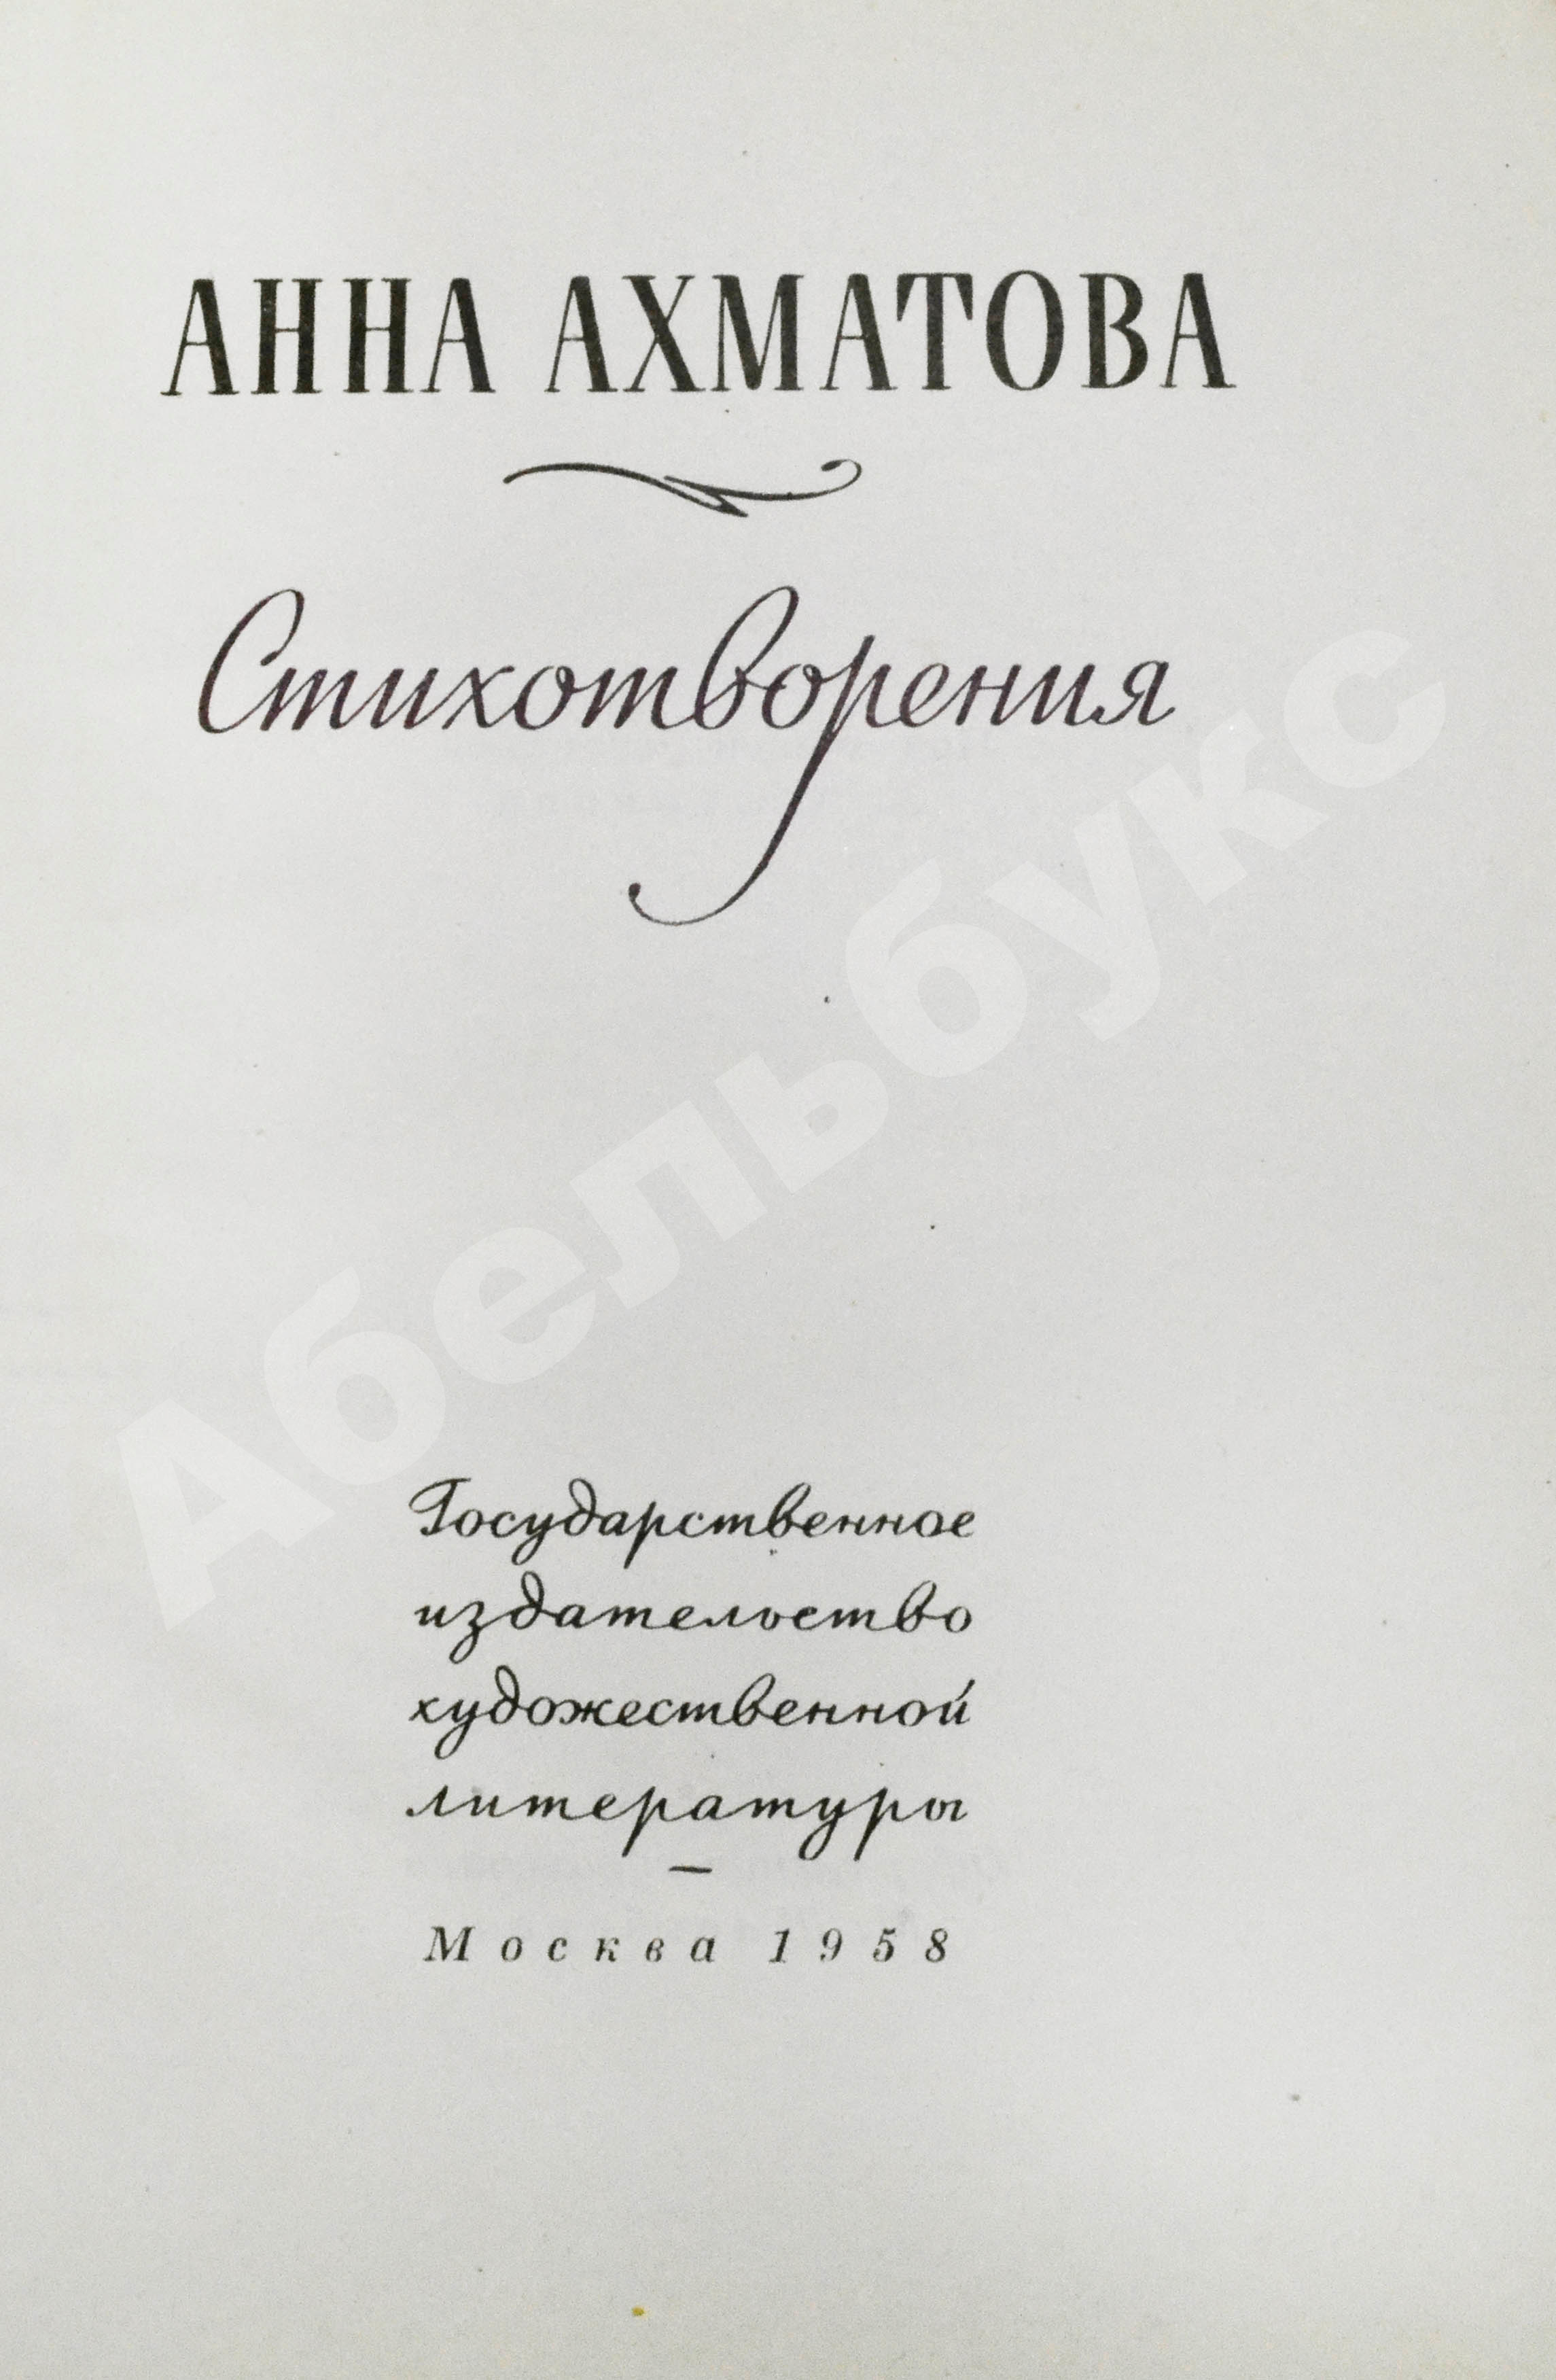 АННА АХМАТОВА
Стихотворения
Абельбукс
Государственное
издательство
художественной
литературы
—
Москва 1958